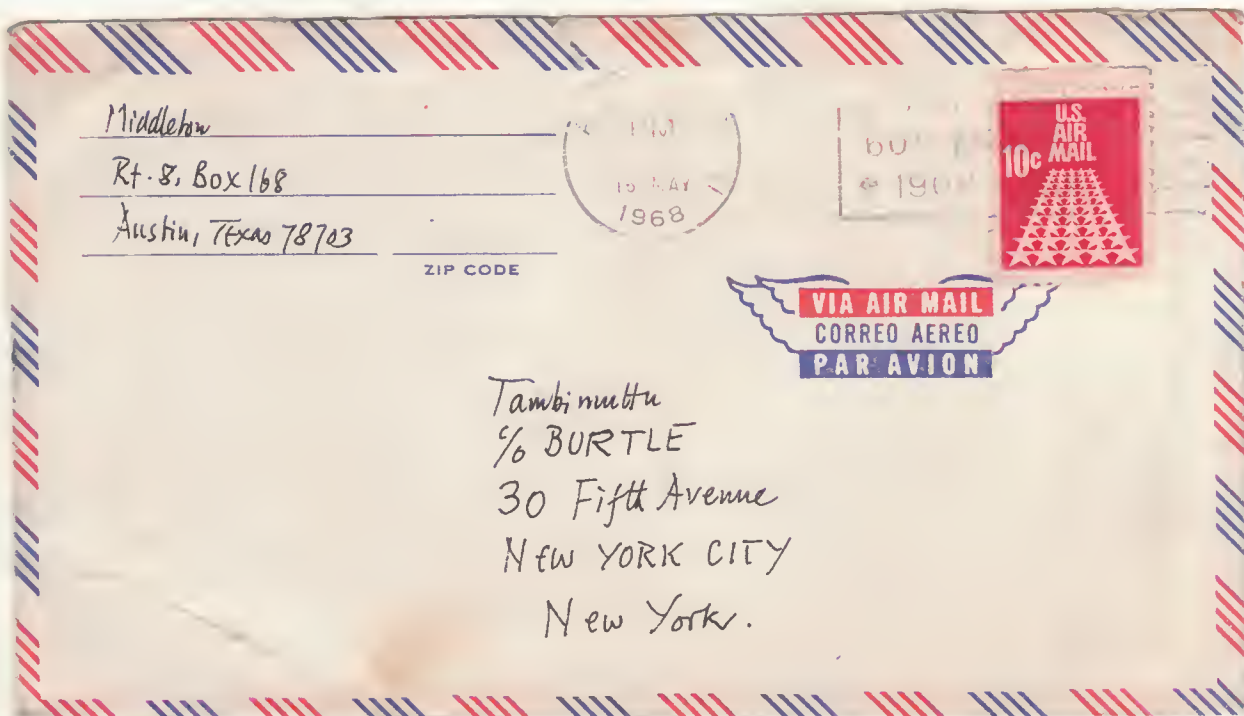 Middleton
Rt. 8, Box 168
Austin, Texas 78703
ZIP CODE
PM
15 MAY
1968
U.S.
AIR
MAIL
10c
VIA AIR MAIL
CORREO AEREO
PAR AVION
Tambimuttu
c/o BURTLE
30 Fifth Avenue
New YORK CITY
New York.